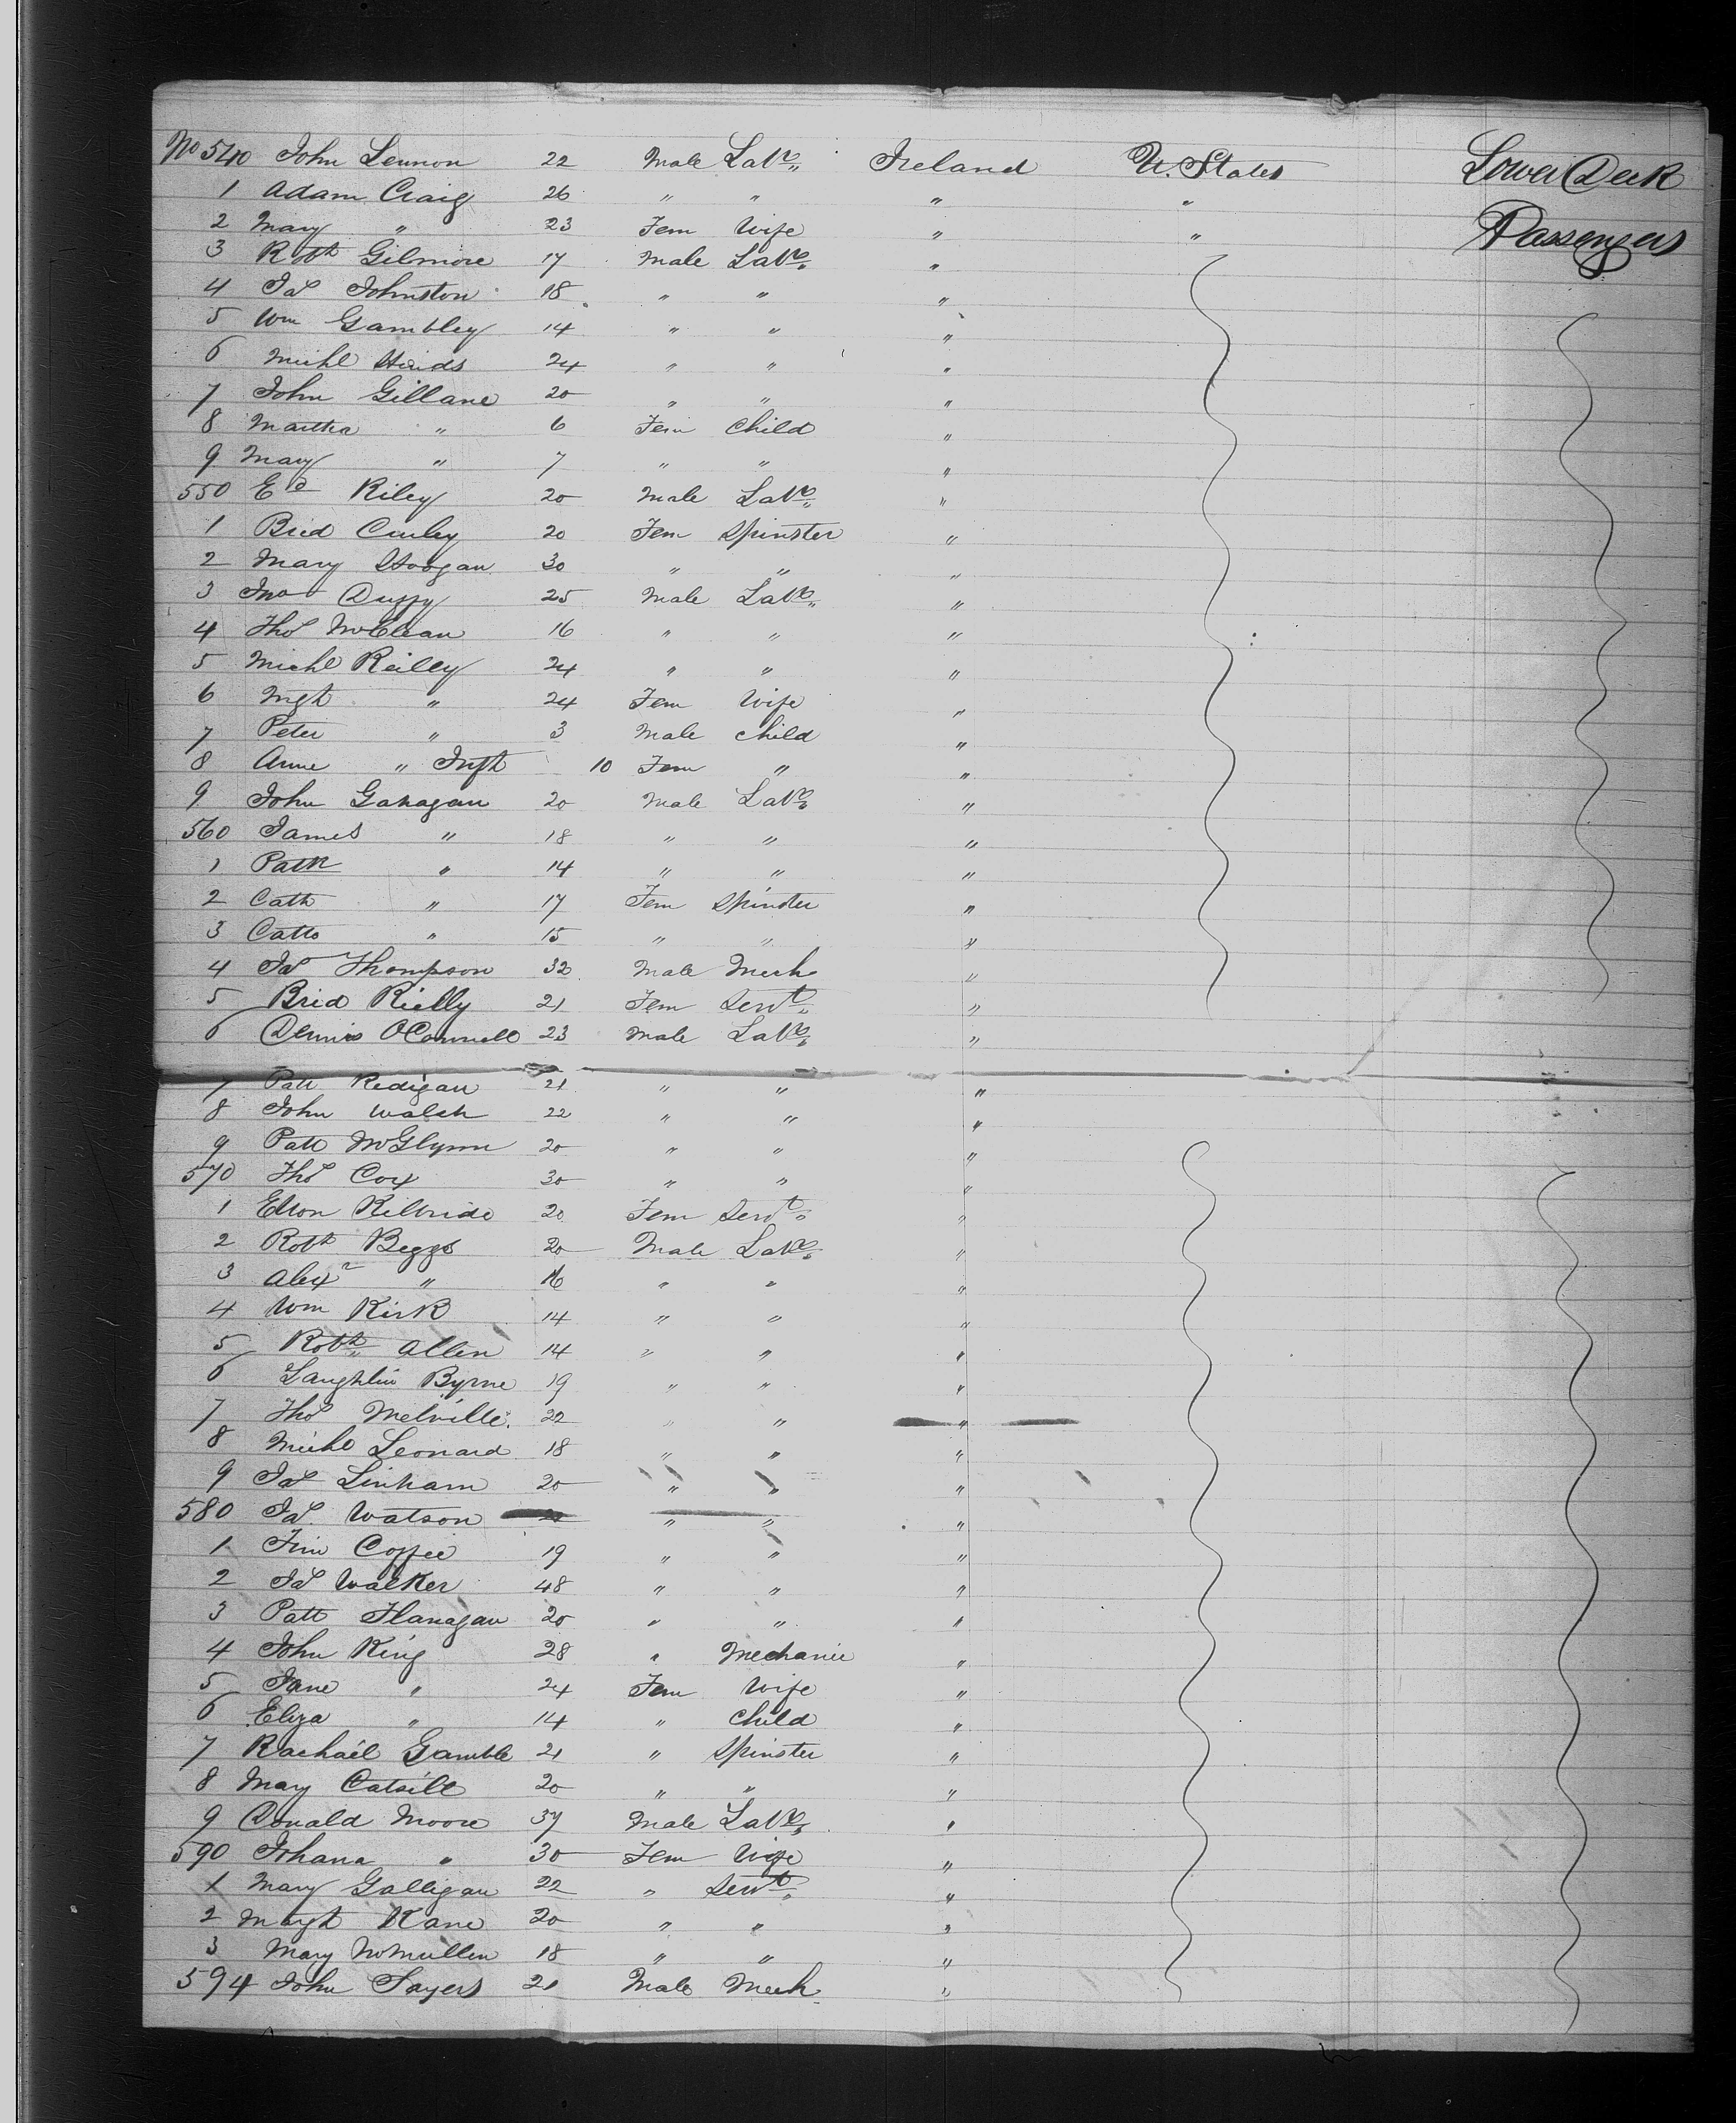 No 540 John Lennon 22 Male Labr Ireland U. States Lower Deck
1 Adam Craig 26 " " " "
2 Mary " 23 Fem Wife " " Passengers
3 Robt Gilmore 17 Male Labr "
4 Jas Johnston 18 " " "
5 Wm Gambley 14 " " "
6 Michl Hinds 24 " " "
7 John Gillane 20 " " "
8 Martha " 6 Fem Child "
9 Mary " 7 " " "
550 Ed Riley 20 Male Labr "
1 Brid Curley 20 Fem Spinster "
2 Mary Hoogan 30 " " "
3 Jno Duffy 25 Male Labr "
4 Thos McClean 16 " " "
5 Michl Reilly 24 " " "
6 Mgt " 24 Fem Wife "
7 Peter " 3 Male Child "
8 Anne " Inft 10 Fem " "
9 John Ganagan 20 Male Labr "
560 James " 18 " " "
1 Patk " 14 " " "
2 Cath " 17 Fem Spinster "
3 " 15 " " "
4 Jas Thompson 32 Male Mech "
5 Brid Rielly 21 Fem Servt "
6 Dennis O'Connell 23 Male Labr "
7 Patt Redigan 21 " " "
8 John Walsh 22 " " "
9 Patt McGlynn 20 " " "
570 Thos Cox 30 " " "
1 Ellon Kilbride 20 Fem Servt "
2 Robt Beggs 20 Male Labr "
3 Alexr " 16 " " "
4 Wm Kirk 14 " " "
5 Robt Allen 14 " " "
6 Laughlin Byrne 19 " " "
7 Thos Melville 22 " " "
8 Michl Leonard 18 " " "
9 Jas Linham 20 " " "
580 Jas Watson " " "
1 Tim Coffee 19 " " "
2 Jas Walker 48 " " "
3 Patt Flanagan 20 " " "
4 John King 28 " Mechanic "
5 Jane " 24 Fem Wife "
6 Eliza " 14 " Child "
7 Rachael Gamble 21 " Spinster "
8 Mary 20 " " "
9 Donald Moore 37 Male Labr "
590 Johana " 30 Fem Wife "
1 Mary Galligan 22 " Servt "
2 Margt Kane 20 " " "
3 Mary McMullen 18 " " "
594 John Sayers 21 Male Mech "